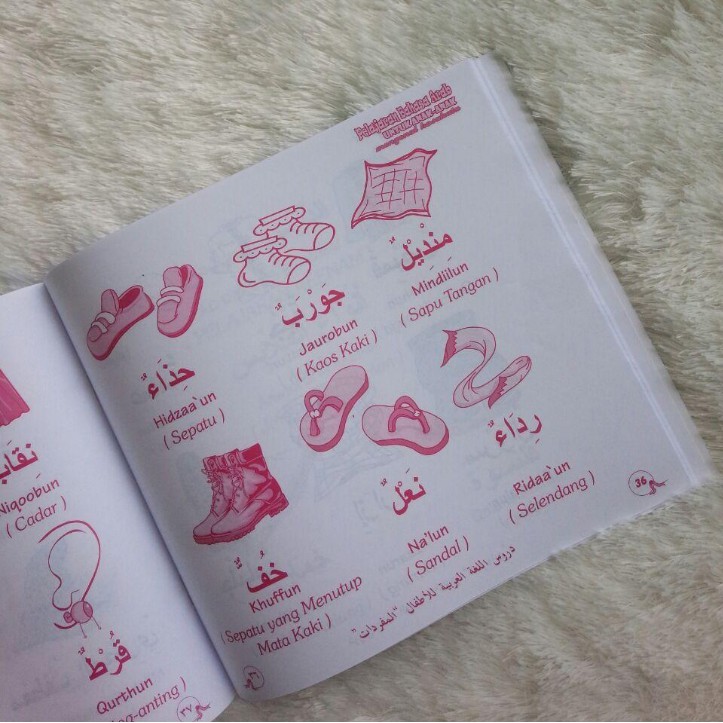 Pelajaran Bahasa Arab
UNTUK ANAK-ANAK
مِنْدِيْلٌ
Mindiilun
( Sapu Tangan )
جَوْرَبٌ
Jaurobun
( Kaos Kaki )
حِذَاءٌ
Hidzaa`un
( Sepatu )
رِدَاءٌ
Ridaa`un
( Selendang )
نَعْلٌ
Na'lun
( Sandal )
خُفٌّ
Khuffun
( Sepatu yang Menutup
Mata Kaki )
36
دروس اللغة العربية للأطفال "المفردات"
Niqoobun
( Cadar )
قُرْطٌ
Qurthun
٣٧